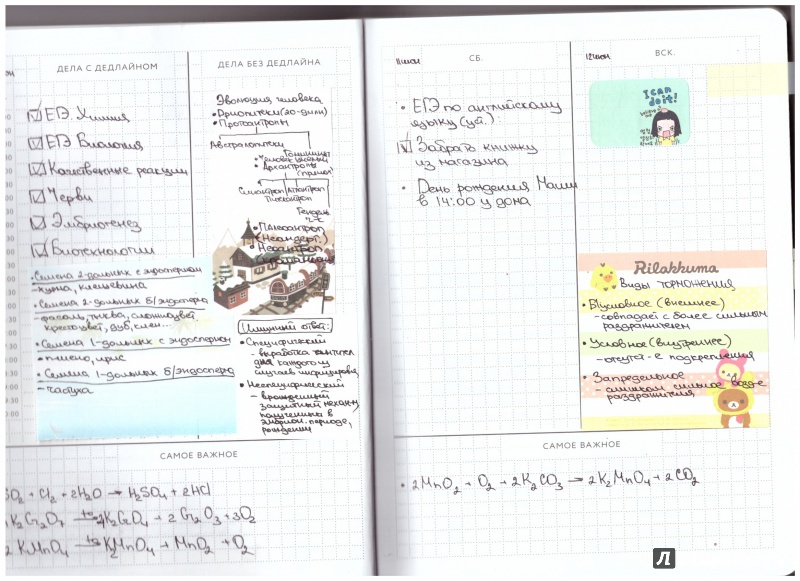 ДЕЛА С ДЕДЛАЙНОМ
ЕГЭ. Химия
ЕГЭ Биология
Качественные реакции
Черви
Эмбриогенез
Биотехнологии
• Семена 2-дольных с эндоспермом
- хурма, клещевина
• Семена 2-дольных б/эндосперма
- фасоль, тыква, сложноцвет.
крестоцвет, дуб, клен...
• Семена 1-дольных с эндоспермом
• пшено, ирис
• Семена 1-дольных б/эндосперма
- частуха
ДЕЛА БЕЗ ДЕДЛАЙНА
Эволюция человека
• Дриопитеки
• Протоантропы
Австралопитеки
Человек умелый
• Архантропы
Синантроп Атлантроп
Питекантроп
• Палеоантроп
(Неандерт.)
• Неоантроп
Иммунный ответ:
• Специфический
- выработка антител
для каждого
случаев
• Неспецифический
- врожденный
защитный механизм,
полученный в
эмбрион. периоде,
рождении
САМОЕ ВАЖНОЕ
SO2 + Cl2 + 2H2O → H2SO4 + 2HCl
K2Cr2O7 →t° 2K2CrO4 + 2Cr2O3 + 3O2
2 KMnO4 →t° K2MnO4 + MnO2 + O2
11 июн
СБ.
• ЕГЭ по английскому
языку (уст.):
Забрать книжку
из магазина
• День рождения Маши
в 14:00 у дома
12 июн
ВСК.
I can
do it!
Rilakkuma
Виды торможения
• Б/условное (внешнее)
- совпадает с более сильным
раздражителем
• Условное (внутреннее)
- отсутст-е подкрепления
• Запредельное
- слишком сильное возд-е
раздражителя
САМОЕ ВАЖНОЕ
• 2MnO2 + O2 + 2K2CO3 → 2K2MnO4 + 2CO2
Л